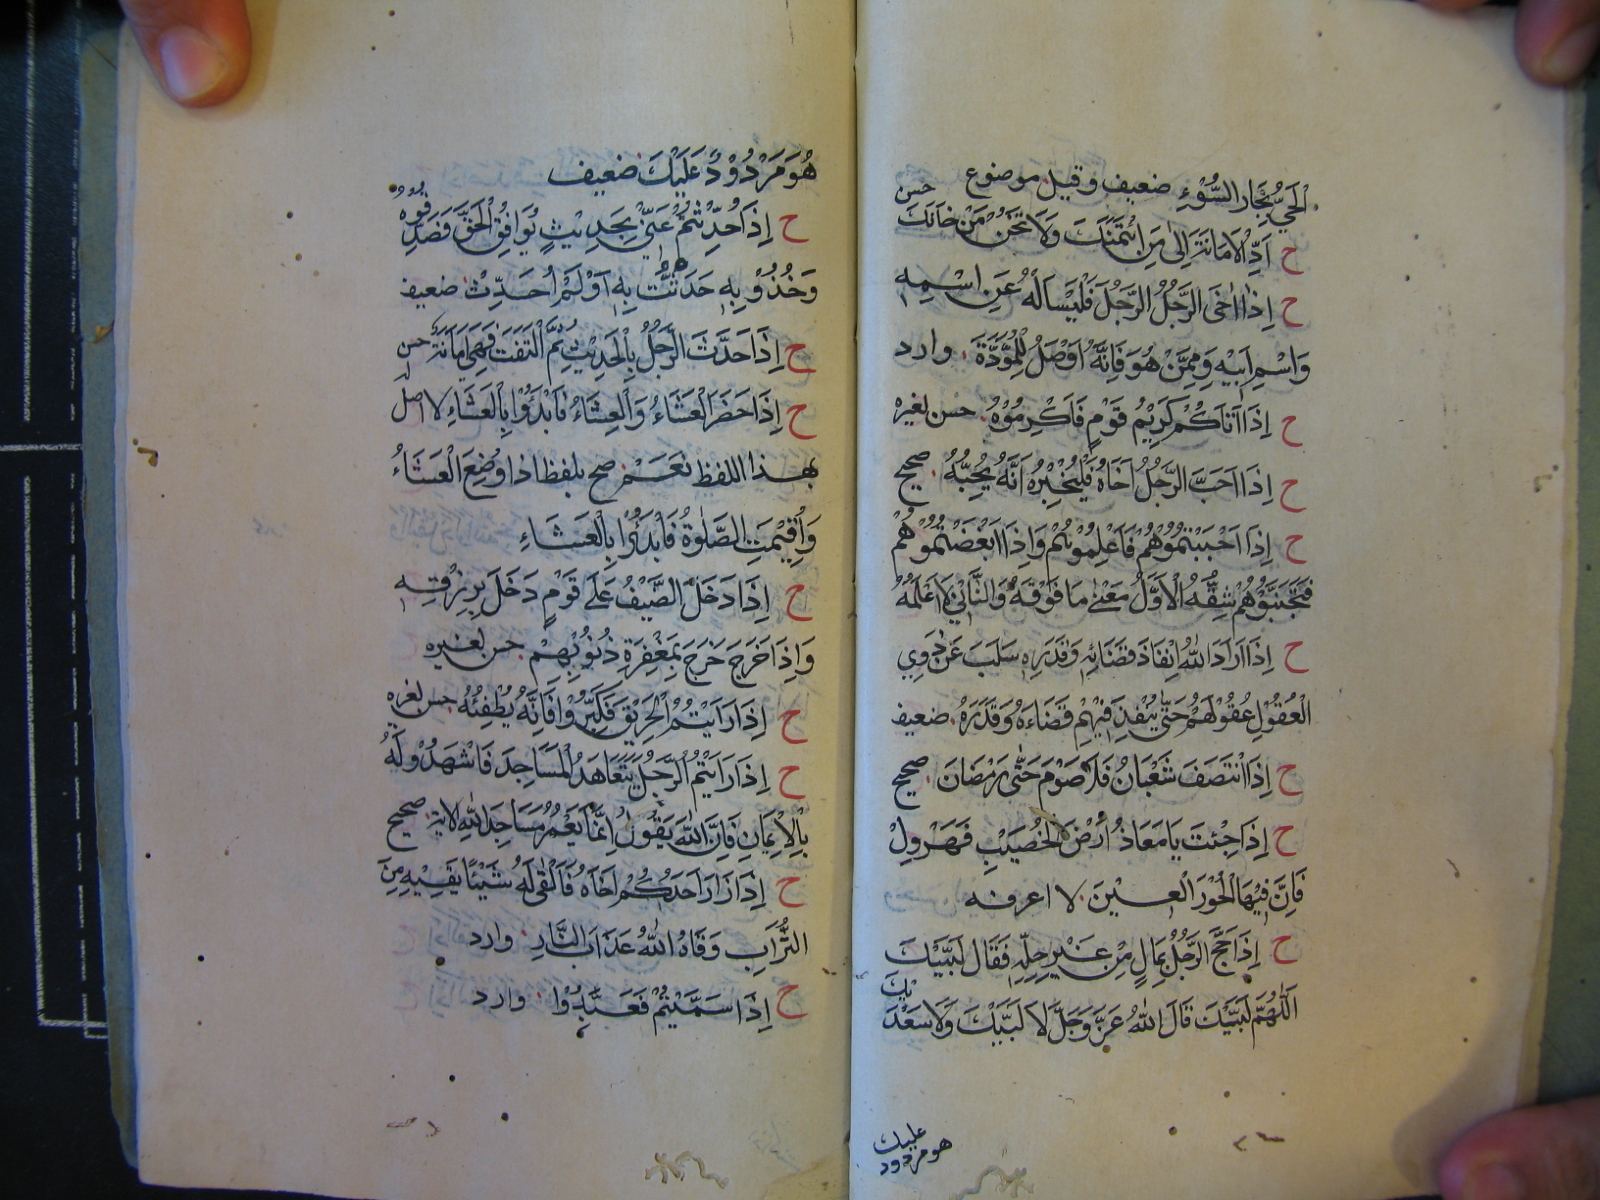 الْحَيَّ بِجَارِ السُّوْءِ ضعيف وقيل موضوع
ح اَدِّ الْاَمَانَةَ اِلٰى مَنِ ائْتَمَنَكَ وَلَا تَخُنْ مَنْ خَانَكَ حسن
ح اِذَا اٰخَى الرَّجُلُ الرَّجُلَ فَلْيَسْاَلْهُ عَنِ اسْمِهٖ
وَاسْمِ اَبِيْهِ وَمِمَّنْ هُوَ فَاِنَّهُ اَوْصَلُ لِلْمَوَدَّةِ وارد
ح اِذَا اَتَاكُمْ كَرِيْمُ قَوْمٍ فَاَكْرِمُوْهُ حسن لغيره
ح اِذَا اَحَبَّ الرَّجُلُ اَخَاهُ فَلْيُخْبِرْهُ اَنَّهُ يُحِبُّهُ صحيح
ح اِذَا اَحْبَبْتُمُوْهُمْ فَاَعْلِمُوْهُمْ وَاِذَا اَبْغَضْتُمُوْهُمْ
فَتَجَنَّبُوْهُمْ شِقُّهُ الْاَوَّلُ مَعْنٰى مَا فَوْقَهُ وَالثَّانِيْ لَا اَعْلَمُهُ
ح اِذَا اَرَادَ اللّٰهُ اِنْفَاذَ قَضَائِهٖ وَقَدَرِهٖ سَلَبَ عَنْ ذَوِي
الْعُقُوْلِ عُقُوْلَهُمْ حَتّٰى يُنْفِذَ فِيْهِمْ قَضَاءَهُ وَقَدَرَهُ ضعيف
ح اِذَا انْتَصَفَ شَعْبَانُ فَلَا صَوْمَ حَتّٰى رَمَضَانَ صحيح
ح اِذَا جِئْتَ يَا مَعَاذُ اَرْضَ الْخُصَيْبِ فَهَرْوِلْ
فَاِنَّ فِيْهَا الْحُوْرَ الْعِيْنَ لا اعرفه
ح اِذَا حَجَّ الرَّجُلُ بِمَالٍ مِنْ غَيْرِ حِلِّهٖ فَقَالَ لَبَّيْكَ
اَللّٰهُمَّ لَبَّيْكَ قَالَ اللّٰهُ عَزَّ وَجَلَّ لَا لَبَّيْكَ وَلَا سَعْدَيْكَ
هو مردود عليك
هُوَ مَرْدُوْدٌ عَلَيْكَ ضعيف
ح اِذَا حُدِّثْتُمْ عَنِّيْ بِحَدِيْثٍ يُوَافِقُ الْحَقَّ فَصَدِّقُوْهُ
وَخُذُوْا بِهٖ حَدَّثْتُ بِهٖ اَوْ لَمْ اُحَدِّثْ ضعيف
ح اِذَا حَدَّثَ الرَّجُلُ بِالْحَدِيْثِ ثُمَّ الْتَفَتَ فَهِيَ اَمَانَةٌ حسن
ح اِذَا حَضَرَ الْعَشَاءُ وَالْعِشَاءُ فَابْدَؤُوْا بِالْعَشَاءِ لا اصل
بهذا اللفظ نَعَمْ صح بلفظ اذا وُضِعَ الْعَشَاءُ
وَاُقِيْمَتِ الصَّلٰوةُ فَابْدَؤُا بِالْعَشَاءِ
ح اِذَا دَخَلَ الضَّيْفُ عَلٰى قَوْمٍ دَخَلَ بِرِزْقِهٖ
وَاِذَا خَرَجَ خَرَجَ بِمَغْفِرَةِ ذُنُوْبِهِمْ حسن لغيره
ح اِذَا رَاَيْتُمُ الْحَرِيْقَ فَكَبِّرُوْا فَاِنَّهُ يُطْفِئُهُ حسن لغيره
ح اِذَا رَاَيْتُمُ الرَّجُلَ يَتَعَاهَدُ الْمَسَاجِدَ فَاشْهَدُوْا لَهُ
بِالْاِيْمَانِ فَاِنَّ اللّٰهَ يَقُوْلُ اِنَّمَا يَعْمُرُ مَسَاجِدَ اللّٰهِ الاية صحيح
ح اِذَا زَارَ اَحَدُكُمْ اَخَاهُ فَاَلْقٰى لَهُ شَيْئًا يَقِيْهِ مِنَ
التُّرَابِ وَقَاهُ اللّٰهُ عَذَابَ النَّارِ وارد
ح اِذَا سَمَّيْتُمْ فَعَبِّدُوْا وارد